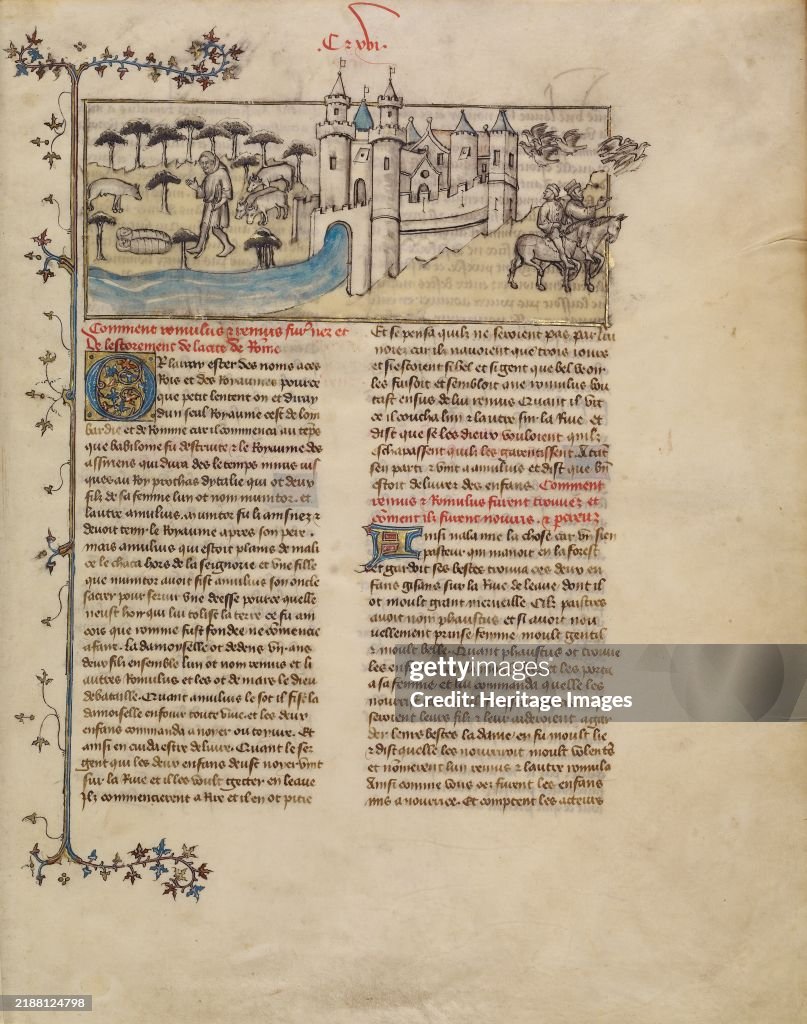 .C xvi.
Comment romulus et remus fur' nez et
De lestorement de la cite de Rome
OR lairay ester des noms a ces
Rois et des Royaumes pource
que petit lentent on et diray
dun seul Royaume cest de lom
bardie et de Romme car il commenca au teps
que babiloine fu destruite et le Royaume des
assiriens qui dura des le temps ninus ius
ques au Roy prochas dytalie qui ot deux
filz de sa femme lun ot nom numitor. et
lautre amulius. numitor fu li ainsnez et
devoit tenir le Royaume apres son pere.
mais amulius qui estoit plains de mali
ce le chaca hors de la seignorie et une fille
que numitor avoit fist amulius son oncle
sacrer pour servir une deesse pource quelle
neust hoir qui lui tolist la terre ce fu ain
cois que romme fust fondee ne comencie
a faire. la damoiselle ot dedens un an.
deux filz ensemble lun ot nom remus et li
autres Romulus et les ot de mars le dieu
de bataille. Quant amulius le sot il fist la
damoiselle enfouir toute vive et les deux
enfans commanda a noyer ou tonne. Et
ainsi en cuida estre delivre. Quant le ser
gent qui les deux enfans deust noyer vint
sur la Rive et il les voult getter en leaue
Ilz commencerent a Rire et il en ot pitie
Et se pensa quilz ne seroient pas par lui
noiez car ilz navoient que trois iours
et si estoient si bel et si gent que bel veoir
les faisoit et sembloit que romulus bou
tast ensus de lui remus Quant il vit
ce il coucha lun et lautre sur la Rive et
dist que se les dieux vouloient quilz
eschapassent quilz les garentissent. A tant
sen parti et vint a amulius et dist que bn
estoit delivre des enfans. Comment
remus et Romulus furent trouvez et
coment ilz furent nouris.
Ainsi nala mie la chose car un sien
pasteur qui manoit en la forest
et gardoit ses bestes trouva ces deux en
fans gisans sur la Rive de leaue dont il
ot moult grant merveille Cilz pastres
avoit nom phaustus et si avoit nou
vellement prinse femme moult gentil
et moult belle. Quant phaustus ot trouve
les en et les porta
a sa femme et lui commanda quelle les
nour
seroient leurs filz et leur aideroient a gar
der leurs bestes la dame en fu moult lie
et dist quelle les nourriroit moult volentz
et nommerent lun remus et lautre romulus
Ainsi comme vous oez furent les enfans
mis a nourrice. Et comptent les acteurs
gettyimages
Credit: Heritage Images
2188124798